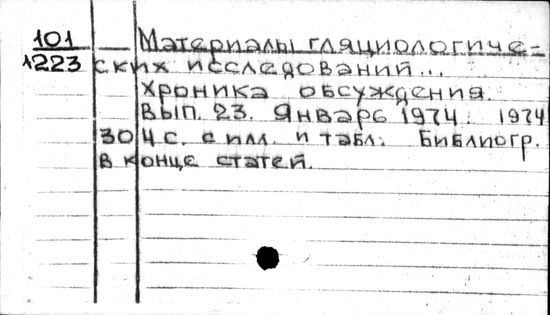 101 Материалы гляциологиче-
1223 ских исследований...
Хроника обсуждения.
Вып. 23. Январь 1974. 1974
304 с. с илл. и табл. Библиогр.
в конце статей.